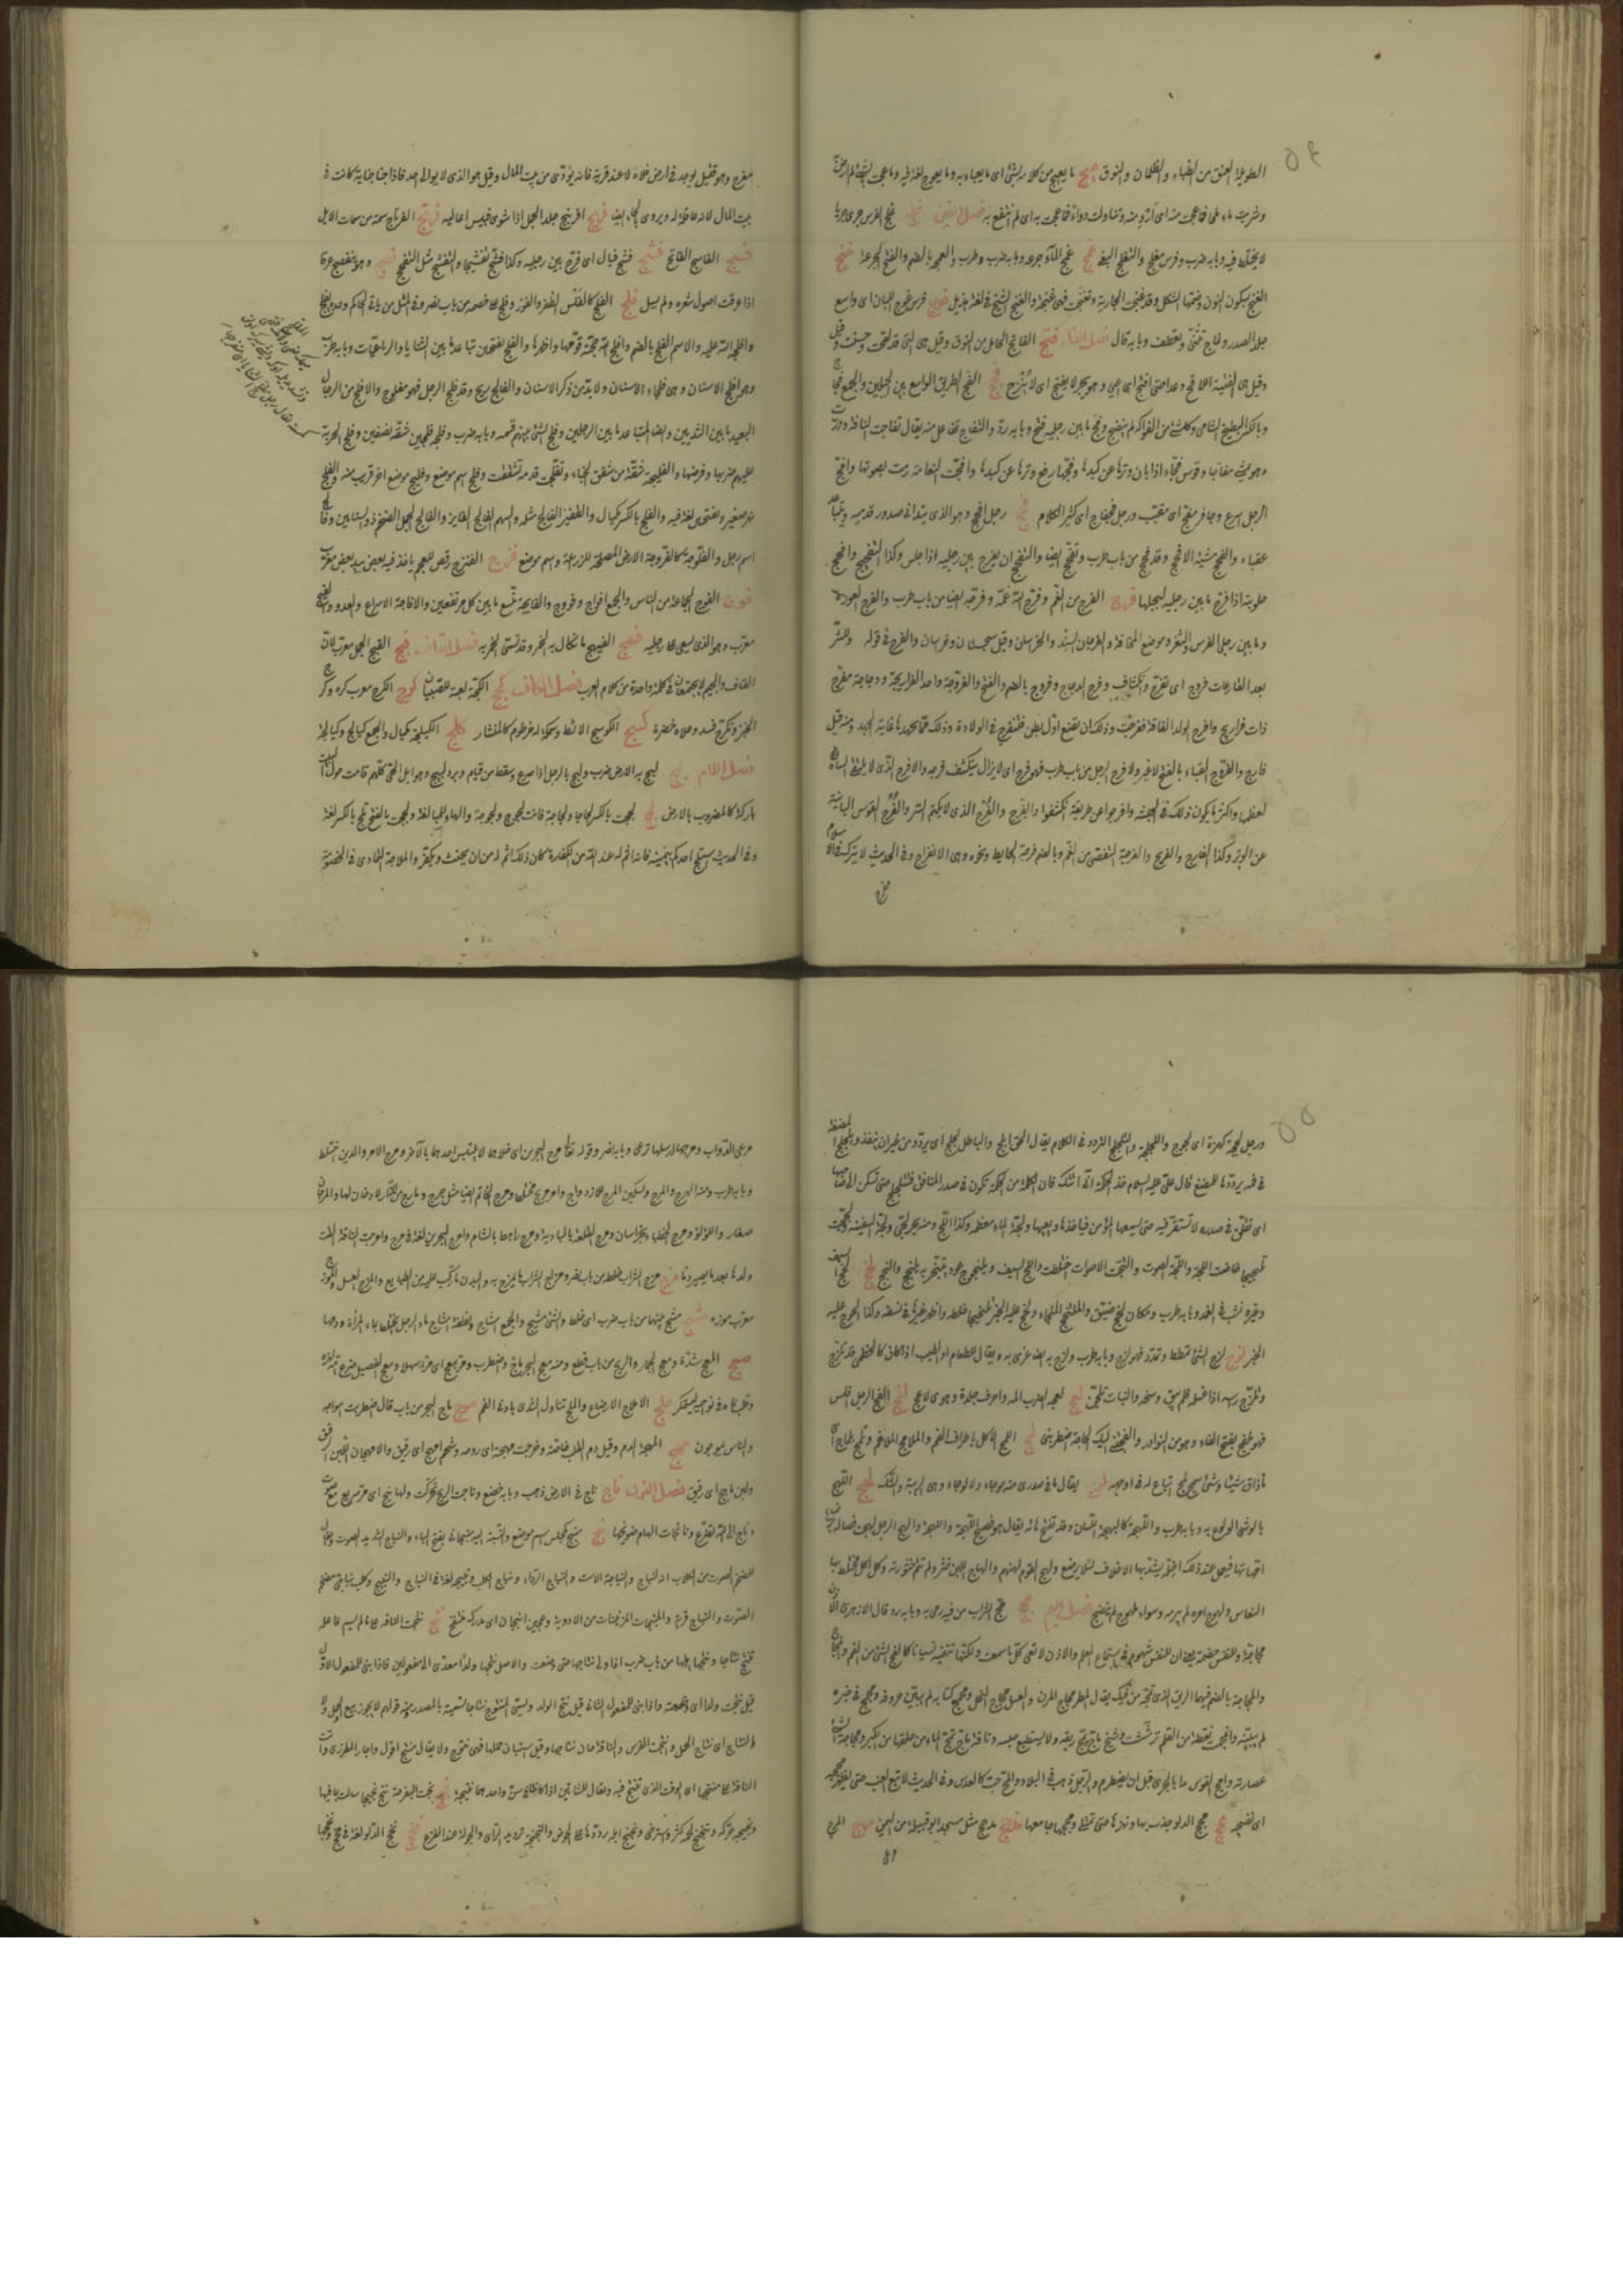 ٥٤
الطويلة العنق من الظباء والظلمان والنوق عيج ما يعيج من كلامه بشئ اى ما يعباء به وما يعوج لغة فيه وما عجت بشئ لم ارض به
وشربت ماء ملحا فما عجت منه اى لم ارو منه وتناولت دواء فما عجت به اى لم انتفع به فصل الغين غلج غلج الفرس جرى جريا
لا يختلط فيه وبابه ضرب وفرس مغلج والتغلج البغى غمج غمج الماء جرعه وبابه ضرب وطرب والغمجة بالضم والفتح الجرعة غنج
الغنج بسكون النون وضمها الشكل وقد غنجت الجارية وتغنجت فهى غنجة والغنج الشيخ فى لغة هذيل غوج فرس غوج اللبان اى واسع
جلد الصدر وغاج تثنى وتعطف وبابه قال فصل الفاء فثج الفاثج الحامل من النوق وقيل هى التى قد لقحت وحسنت وقيل
هى الفتية اللاقح وعدا حتى افثج اى اعيى وهو بحر لا يفثج اى لا ينزح فجج الفج الطريق الواسع بين الجبلين والجمع فجاج
وبالكسر البطيخ الشامى وكل شئ من الفواكه لم ينضج وفج ما بين رجليه فتح وبابه رد والتفاج تفاعل منه يقال تفاجت الناقة ودرت
وهو يمشى مفاجا وقوس فجاء اذا بان وترها عن كبدها وفجها رفع وترها عن كبدها وافجت النعامة رمت بصومها وافج
الرجل اسرع وحافر مفج اى مقبب ورجل فجفاج اى كثير الكلام فحج رجل افحج وهو الذى يتدانى صدور قدميه ويتباعد
عقباه والفحج مشية الافحج وقد فحج من باب طرب وتفحج ايضا والتفحج ان يفرج بين رجليه اذا جلس وكذا التفحيج وافحج
حلوبته اذا فرج ما بين رجليها ليحلبها فرج الفرج من الغم وفرج الله غمه وفرجه ايضا من باب ضرب والفرج العورة
وما بين رجلى الفرس والثغر وموضع المخافة والفرجان السند والخراسان وقيل سجستان وخراسان والفرج فى قوله وللشر
بعد القارعات فروج اى تفرج وانكشاف وفرج الدجاج وفروج بالضم والفتح والفروجة واحد الفراريج ودجاجة مفرج
ذات فراريج وافرج الولد الناقة ففرجت وذلك ان تضع اول بطن فتنفرج فى الولادة وذلك مما يجهدها غاية الجهد ومنه قيل
فارج والفروج القباء بالفتح لا غير ولا فرج الرجل من باب طرب فهو فرج اى لا يزال ينكشف فرجه والافرج الذى لا يلتقى اليتاه
لعظمها واكثر ما يكون ذلك فى الحبشة وافرجوا عن طريقه انكشفوا والفرج والفرج الذى لا يكتم السر والفرج القوس البائنة
عن الوتر وكذا الفارج والفريج والفرجة التفصى من الغم وبالضم فرجة الحايط ونحوه وهى الانفراج وفى الحديث لا يترك فى الاسلام
مفرج
مفرج وهو قتيل يوجد فى ارض فلاة لا عند قرية فانه يؤدى من بيت المال وقيل هو الذى لا يوالى احد فاذا جنا جناية كانت فى
بيت المال لانه لا عاقلة له ويروى بالحاء ايضا فرنج افرنج جلد الحمل اذا شوى فيبس اعاليه فرتج الفرتاج سمة من سمات الابل
فسج الفاسج الفاثج فشج فشج فبال اى فرج بين رجليه وكذا فشج تفشيجا والتفشج مثل التفحج فضج وهو يتفضج عرقا
اذا عرقت اصول شعره ولم يسل فلج الفلج كالفلس الظفر والفوز وفلج على خصمه من باب نصر وفى المثل من يأت الحاكم وحده يفلج
وافلجه الله عليه والاسم الفلج بالضم وافلج الله حجته قومها واظهرها والفلج بفتحتين تباعد ما بين الثنايا والرباعيات وبابه طرب
وهو افلج الاسنان وهى فلجاء الاسنان ولا بد من ذكر الاسنان والفالج ريح وقد فلج الرجل فهو مفلوج والافلج من الرجال
البعيد ما بين الثديين وايضا المتباعد ما بين الرجلين وفلج الشئ بينهم قسمه وبابه ضرب وفلجه فلجين شقه نصفين وفلج الجزية
عليهم ضربها وفرضها والفليجة شقة من شقق الخباء وتفلجت قدمه تشققت وفلج اسم موضع وفليج موضع اخر قريب منه والفلج
نهر صغير وبفتحتين لغة فيه والفلج بالكسر مكيال والقفيز الفالج مثله والسهم الفالج الفايز والفالج الجمل الضخم ذو السنامين وفالج
اسم رجل والفلوجة كالفروجة الارض المصلحة للزرعة واسم موضع فنزج الفنزج رقص للعجم ياخذ فيه بعض بيد بعض معرب
فوج الفوج الجماعة من الناس والجمع افواج وفووج والفايجة متسع ما بين كل مرتفعين والافاجة الاسراع والعدو والفيج
معرب وهو الذى يسعى على رجليه فيهج الفيهج ما تكال به الخمر وقد تسمى الخمر به فصل القاف قبج القبج الحجل معرب لان
القاف والجيم لا يجتمعان فى كلمة واحدة من كلام العرب فصل الكاف كجج الكجة لعبة للصبيان كرج الكرج معرب كره وكرج
الخبز وتكرج فسد وعلاه خضرة كسج الكوسج الاثط وسمكة له خرطوم كالمنشار كلج الكيلجة مكيال والجمع كيالج وكيالجة
فصل اللام لبج لبج به الارض ضرب ولبج بالرجل اذا صرع وسقط من قيام وبرد لبيج وهو ابل الحى كلهم قامت حول البيت
باركة كالمضروب بالارض لجج لججت بالكسر لجاجا ولجاجة فانت لجوج ولجوجة والهاء للمبالغة ولججت بالفتح تلج بالكسر لغة
وفى الحديث اذا استلج احدكم بيمينه فانه اثم له عند الله من الكفارة كان ذلك اثم له من ان يحنث ويكفر والملاجة التمادى فى الخصومة
٥٥
ورجل لججة كهمزة اى لجوج واللجلجة والتلجلج التردد فى الكلام يقال الحق ابلج والباطل لجلج اى يردد من غير ان ينفذ ويلجلج المضغة
فى فمه يرددها للمضغ قال على عليه السلام خذ الحكمة انى اتتك فان الكلمة من الحكمة تكون فى صدر المنافق فتلجلج حتى تسكن الى صاحبها
اى تقلق فى صدره لا تستقر فيه حتى يسمعها المؤمن فياخذها ويعيها ولجة الماء معظمه وكذا اللج ومنه بحر لجى ولجة السفينة لججت
تلجيجا خاضت اللجة واللجة الصوت والتجت الاصوات اختلطت واللج السيف ويلنجوج عود يتبخر به يلنجج والنجج لحج لحج السيف
وغيره نشب فى الغمد وبابه طرب ومكان لحج ضيق والملتحج الملجاء ولحج عليه الخبر تلحيجا خلطه واظهر غير ما فى نفسه وكذا لحوج عليه
الخبر لزج لزج الشئ تمطط وتمدد فهو لزج وبابه طرب ولزج به ايضا غرى به ويقال للطعام او الطيب اذا كان كالخطمى قد تلزج
وتلزج رأسه اذا غسله فلم ينق وسخه والنبات تلجن لعج لعجه الضرب آلمه واحرق جلده وهوى لاعج لفج الفج الرجل افلس
فهو ملفج بفتح الفاء وهو من النوادر والفجتنى اليك الحاجة اضطرتنى لمج اللمج الاكل باطراف الفم والملامج الملاغم وتلمج بلماج اى
ماذاق شيئا وشئ سمج لمج اتباع له فى اوجهه لوج يقال ما فى صدرى منه حوجاء ولا لوجاء وهى المرية والشك لهج اللهج
بالشئ الولوع به وبابه طرب واللهجة كالبهجة اللسان وقد تفتح هائه يقال هو فصيح اللهجة واللهجة والهج الرجل لهجت فصاله برضاع
امهاتها فيعمل عند ذلك اخلة يشد بها الاخلاف لئلا يرضع ولهج القوم لهنهم والهاج اللبن خثر ولم تتم خثورته وكل مختلط بها
النعاس ولهوج امره لم يبرمه وشواء ملهوج لم ينضج فصل الميم مجج مج الشراب من فيه رمى به وبابه رد قال الازهرى الاذن
مجاجة وللنفس حمضة يعنى ان للنفس شهوة فى استماع العلم والاذن لا تعى كل ما سمعت ولكنها تنفيه نسيانا كالمج الشئ من الفم والمجاج
والمجاجة بالضم فيهما الريق الذى تمجه من فيك يقال المطر مجاج المزن والعسل مجاج النحل ومجمج كتابه لم يبين حروفه ومجمج فى خبره
لم يبينه وانمجت نقطة من القلم ترششت وشيخ ماج يمج ريقه ولا يستطيع حبسه وناقة ماج تمج الماء من حلقها من الكبر ومجاجة الشئ
عصارته وامج الفرس بدا بالجرى قبل ان يضطرم والرجل ذهب فى البلاد والمج حب كالعدس وفى الحديث لا تبع العنب حتى يظهر مججه
اى نضجه مخج مخج الدلو جذب بها ونهزها حتى تمتلئ ومخجها جامعها مذحج مذحج مثل مسجد ابو قبيلة من اليمن مرج المرج
مرعى الدواب ومرجها ارسلها ترعى وبابه نصر وقوله تعالى مرج البحرين اى خلاهما لا يلتبس احدهما بالآخر ومرج الامر والدين اختلط
وبابه طرب ومنه الهرج والمرج وتسكين المرج للازدواج وامر مريج مختلط ومرج الخاتم ايضا مثل جرج ومارج من النار لا دخان لها والمرجان
صغار اللؤلؤ ومرج الخطباء بخراسان ومرج القلعة بالبادية ومرج راهط بالشام وامرج البحرين لغة فى مرج وامرجت الناقة القت
ولدها بعد ما يصير دما مزج مزج الشراب خلطه من باب نصر ومزاج الشراب ما يمزج به والبدن ما ركب عليه من الطبايع والمزج العسل والموزج
معرب موزه مشج مشج بينهما من باب ضرب اى خلط والشئ مشيج والجمع امشاج ونطفة امشاج ماء الرجل يختلط بماء المرأة ودمها
معج المعج شدة ومعج الحمار والريح من باب قطع ومنه معج البحر ماج واضطرب ومر يمعج اى مر سهلا ومعج الفصيل ضرع امه لهزه
وقلب فاه فى نواحيه ليتمكن ملج الاملاج الارضاع والملج تناول الثدى بادنى الفم موج ماج البحر من باب قال اضطربت امواجه
والناس يموجون مهج المهجة الدم وقيل دم القلب خاصة وخرجت مهجته اى روحه وشحم امهج اى رقيق والامهجان اللبن الرقيق
ولبن ماهج اى رقيق فصل النون نأج نأج فى الارض ذهب وبابه خضع ونأجت الريح تحركت ولها نئيج اى مر سريع مع صوت
ونأج الى الله تضرع ونائجات الهام صوتها نبج منبج كمجلس اسم موضع والنسبة اليه منبجانى بفتح الباء والنباج الشديد الصوت ويقال
للضخم الصوت من الكلاب انه لنباج والنباجة الاست والنباج الرداء ونباج الكلب ونبيجه لغة فى النباح والنبيح وكلب نباجى ضخم
الصوت والنباج قرية والمنبجات المربيات من الادوية وعجين انبجان اى مدرك منتفخ نتج نتجت الناقة على ما لم يسم فاعله
تنتج نتاجا ونتجها اهلها من باب ضرب اذا ولى نتاجها حتى وضعت والاصل نتجها ولدا معدى الى مفعولين فاذا بنى للمفعول الاول
قيل نتجت ولدا اى وضعته واذا بنى للمفعول الثانى قيل نتج الولد ويسمى المنتوج نتاجا تسمية بالمصدر ومنه قولهم لا يجوز بيع الحمل ولا
النتاج اى نتاج الحمل وانتجت الفرس والناقة حان نتاجها وقيل استبان حملها فهى نتوج ولا يقال منتج اقول واجاز المطرزى واتت
الناقة على منتجها اى الوقت الذى تنتج فيه ويقال للشاتين اذا كانتا سنا واحدا هما نتيجة نجج نجت القرحة تنج نجيجا سالت بما فيها
ونجنجه حركه وتنجنج لحمه كثر واسترخى ونجنج ابله ردها على الحوض والنجنجة ترديد الرأى والجولة عند الفزع نخج نخج الدلو لغة فى مخج ونخجها